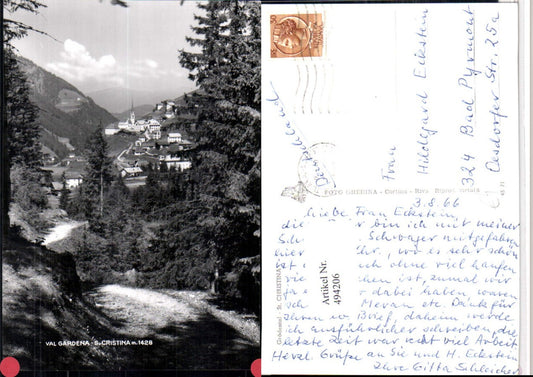 VAL GARDENA - S. CRISTINA m. 1428
Deutschland
Frau
Hildegard Eckstein
324 Bad Pyrmont
Oesdorfer Str. 25a
FOTO GHEDINA - Cortina - Riva
3.8.66
Liebe Frau Eckstein,
die r bin ich mit meiner
Sch Schwager mitgefahren
hier wo es sehr schön
ist ich ohne viel laufen
vie ist, zumal wir
dabei haben waren
sch Meran etc. Dank für
Ihren Brief, daheim werde
ich ausführlicher schreiben, die
letzte Zeit war recht viel Arbeit
Herzl. Grüße an Sie und H. Eckstein
Ihre Gitta Schleicher
Artikel Nr.
494206